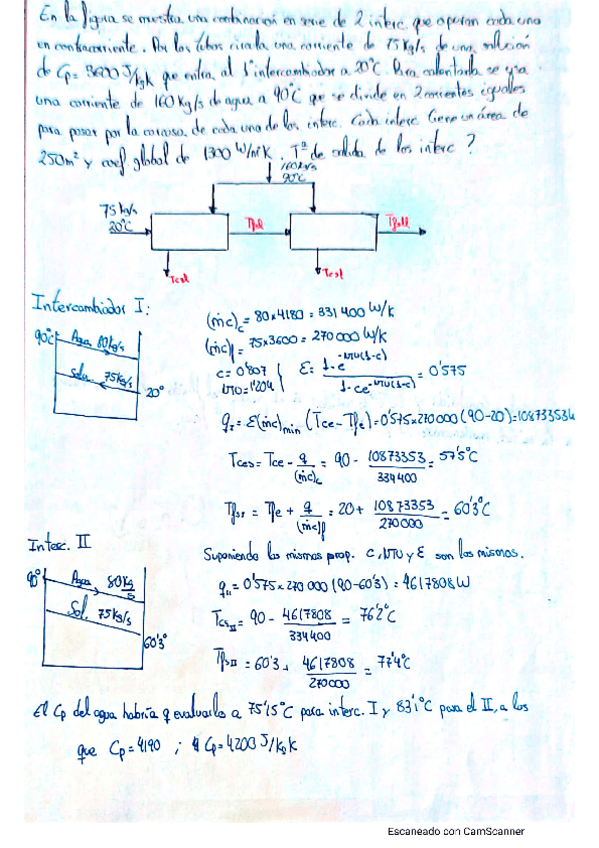 En la figura se muestra una combinación en serie de 2 interc. que operan cada uno
en contracorriente. Por los tubos circula una corriente de 75 kg/s de una solución
de Cp = 3600 J/kgK que entra al 1º intercambiador a 20°C. Para calentarla se usa
una corriente de 160 kg/s de agua a 90°C que se divide en 2 corrientes iguales
para pasar por la carcasa de cada uno de los interc. Cada interc tiene un área de
250m² y coef. global de 1300 W/m²K. Tª de salida de los interc?
160 kg/s
90°C
75 kg/s
20°C
TfsI
TfsII
TcsI
TcsII
Intercambiador I:
(ṁc)c = 80×4180 = 331 400 W/K
(ṁc)f = 75×3600 = 270 000 W/K
90°C
Agua 80kg/s
Soluc. 75kg/s
20°
C = 0'807
NTU = 1'204
ε = 1-e^-NTU(1-c) / 1-ce^-NTU(1-c) = 0'575
qI = ε(ṁc)min (Tce - Tfe) = 0'575×270 000 (90-20) = 10873353W
TcsI = Tce - q/(ṁc)c = 90 - 10873353/334400 = 57'5°C
TfsI = Tfe + q/(ṁc)f = 20 + 10873353/270000 = 60'3°C
Interc. II
Suponiendo las mismas prop. C, NTU y ε son los mismos.
90°
Agua 80 kg/s
Sol. 75kg/s
60'3°
qII = 0'575×270 000 (90-60'3) = 4617808 W
TcsII = 90 - 4617808/334400 = 76'2°C
TfsII = 60'3 + 4617808/270000 = 77'4°C
El Cp del agua habría q evaluarlo a 75'15°C para interc. I y 83'1°C para el II, a los
que Cp = 4190 ; y Cp = 4203 J/kgK
Escaneado con CamScanner